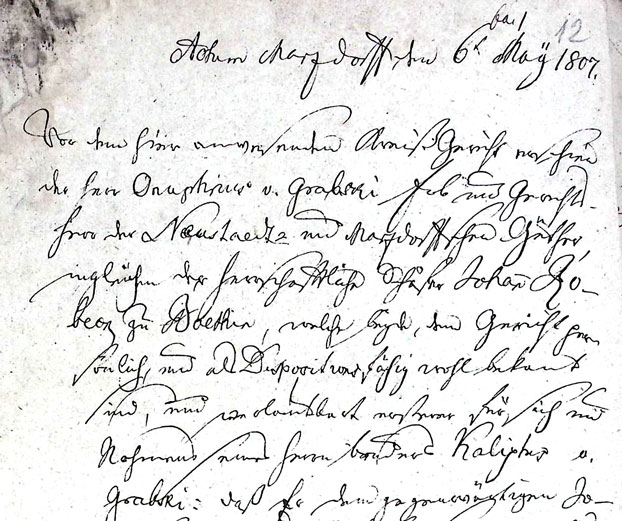 12
Actum Marzdorff den 6t May 1807.
Vor dem hier anwesenden Kreiß Gericht erschien
der Herr Onuphrius v. Grabski Erb und Gerichts-
herr der Neustaedt und Marzdorffschen Güther,
ingleichen der herrschaftliche Schäfer Johann Ro-
beck zu Boethin, welche beyde, dem Gericht per-
sönlich, und als Dispositionsfähig wohl bekant
sind, und verlautbart ersterer für sich und
Nahmens seines Herrn bruders Kalixtus v.
Grabski: daß Er dem gegenwärtigen Jo-